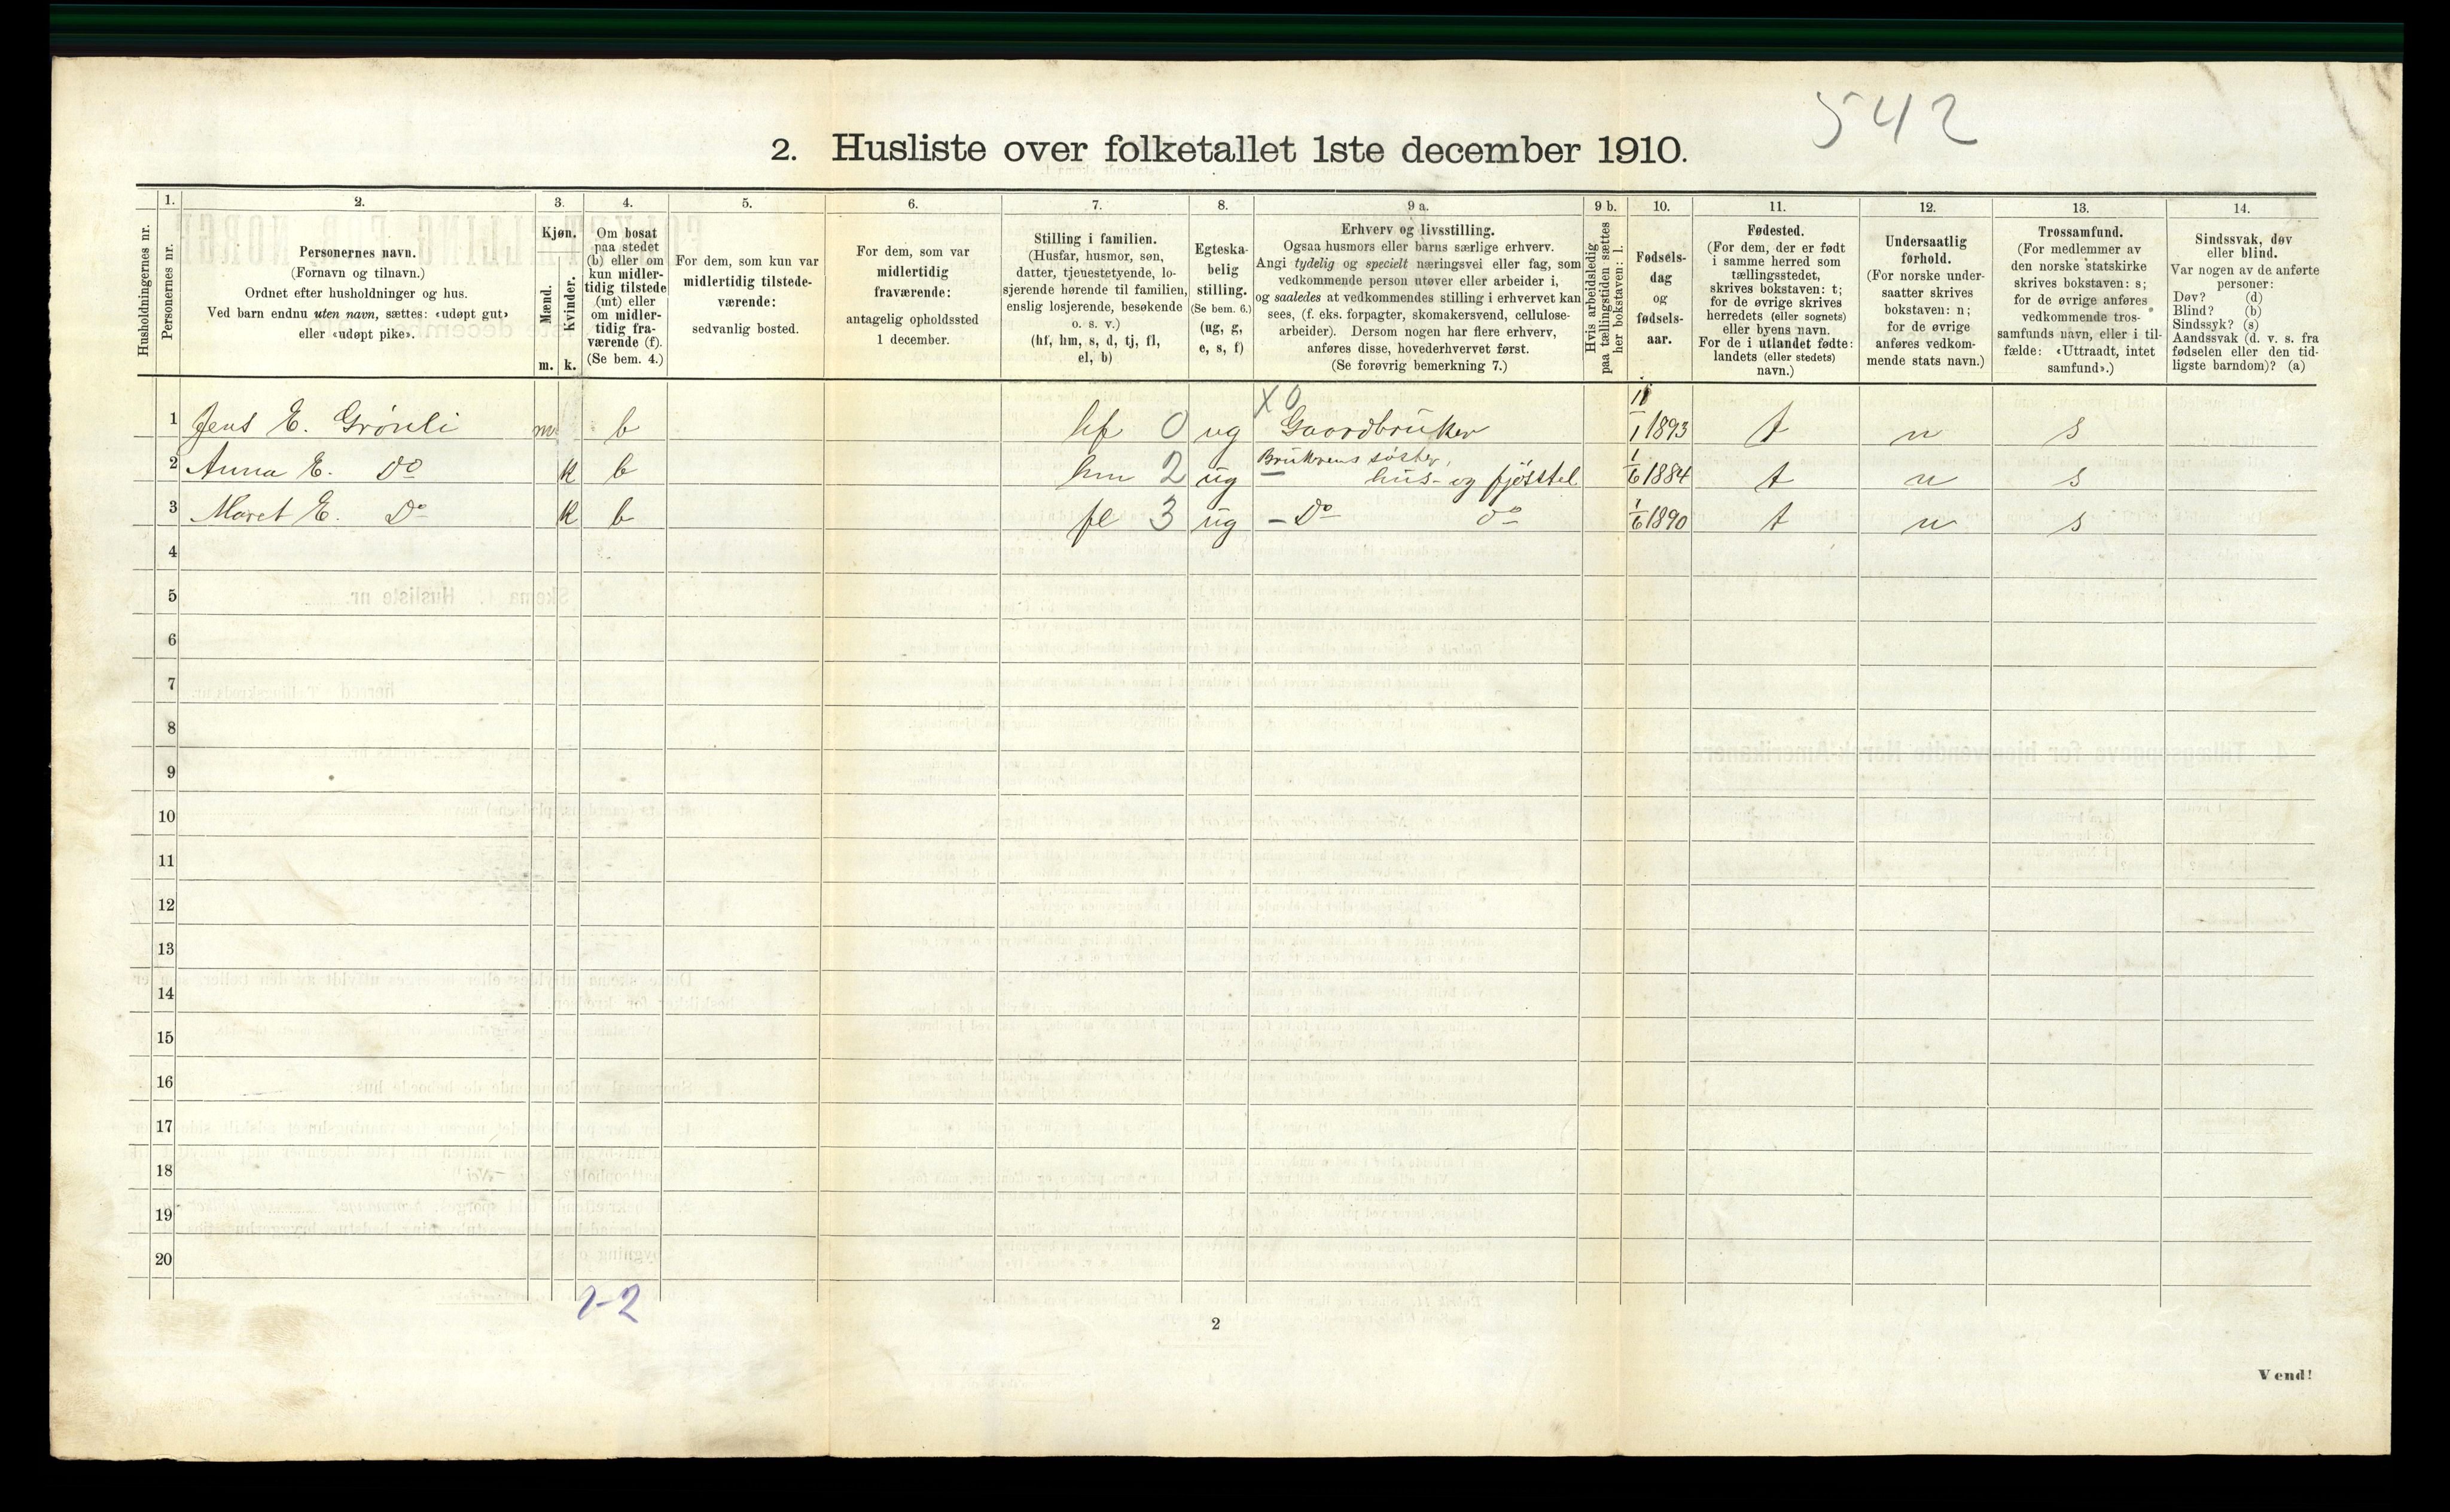 542
2. Husliste over folketallet 1ste december 1910.
Husholdningernes nr.
1.
Personernes nr.
2.
Personernes navn.
(Fornavn og tilnavn.)
Ordnet efter husholdninger og hus.
Ved barn endnu uten navn, sættes: «udøpt gut»
eller «udøpt pike».
3.
Kjøn.
Mænd.
Kvinder.
m. k.
4.
Om bosat
paa stedet
(b) eller om
kun midler-
tidig tilstede
(mt) eller
om midler-
tidig fra-
værende (f).
(Se bem. 4.)
5.
For dem, som kun var
midlertidig tilstede-
værende:
sedvanlig bosted.
6.
For dem, som var
midlertidig
fraværende:
antagelig opholdssted
1 december.
7.
Stilling i familien.
(Husfar, husmor, søn,
datter, tjenestetyende, lo-
sjerende hørende til familien,
enslig losjerende, besøkende
o. s. v.)
(hf, hm, s, d, tj, fl,
el, b)
8.
Egteska-
belig
stilling.
(Se bem. 6.)
(ug, g,
e, s, f)
9 a.
Erhverv og livsstilling.
Ogsaa husmors eller barns særlige erhverv.
Angi tydelig og specielt næringsvei eller fag, som
vedkommende person utøver eller arbeider i,
og saaledes at vedkommendes stilling i erhvervet kan
sees, (f. eks. forpagter, skomakersvend, cellulose-
arbeider). Dersom nogen har flere erhverv,
anføres disse, hovederhvervet først.
(Se forøvrig bemerkning 7.)
9 b.
Hvis arbeidsledig
paa tællingstiden sættes
her bokstaven: l.
10.
Fødsels-
dag
og
fødsels-
aar.
11.
Fødested.
(For dem, der er født
i samme herred som
tællingsstedet,
skrives bokstaven: t;
for de øvrige skrives
herredets (eller sognets)
eller byens navn.
For de i utlandet fødte:
landets (eller stedets)
navn.)
12.
Undersaatlig
forhold.
(For norske under-
saatter skrives
bokstaven: n;
for de øvrige
anføres vedkom-
mende stats navn.)
13.
Trossamfund.
(For medlemmer av
den norske statskirke
skrives bokstaven: s;
for de øvrige anføres
vedkommende tros-
samfunds navn, eller i til-
fælde: «Uttraadt, intet
samfund».)
14.
Sindssvak, døv
eller blind.
Var nogen av de anførte
personer:
Døv? (d)
Blind? (b)
Sindssyk? (s)
Aandssvak (d. v. s. fra
fødselen eller den tid-
ligste barndom)? (a)
X 0
1 Jens E. Grönli m b hf 0 ug Gaardbruker 1/1 1893 t n s
Brukrens söster,
2 Anna E. Do k b hm 2 ug - hus- og fjösstel 1/6 1884 t n s
3 Maret E. Do k b fl 3 ug - Do Do 1/6 1890 t n s
4
5
6
7
8
9
10
11
12
13
14
15
16
17
18
19
20
1-2
2
Vend!